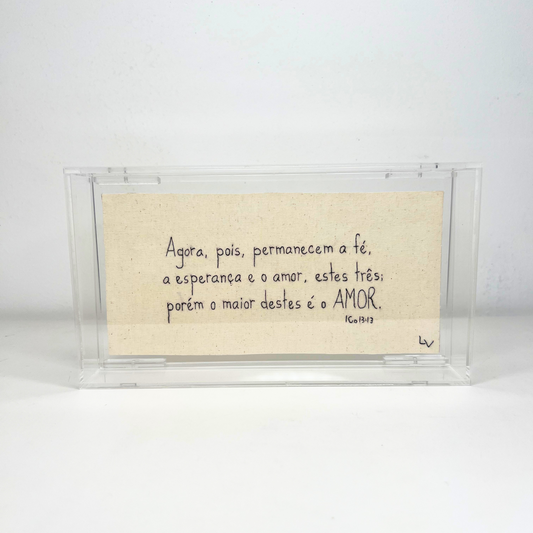 Agora, pois, permanecem a fé,
a esperança e o amor, estes três;
porém o maior destes é o AMOR.
1Co 13:13
LV